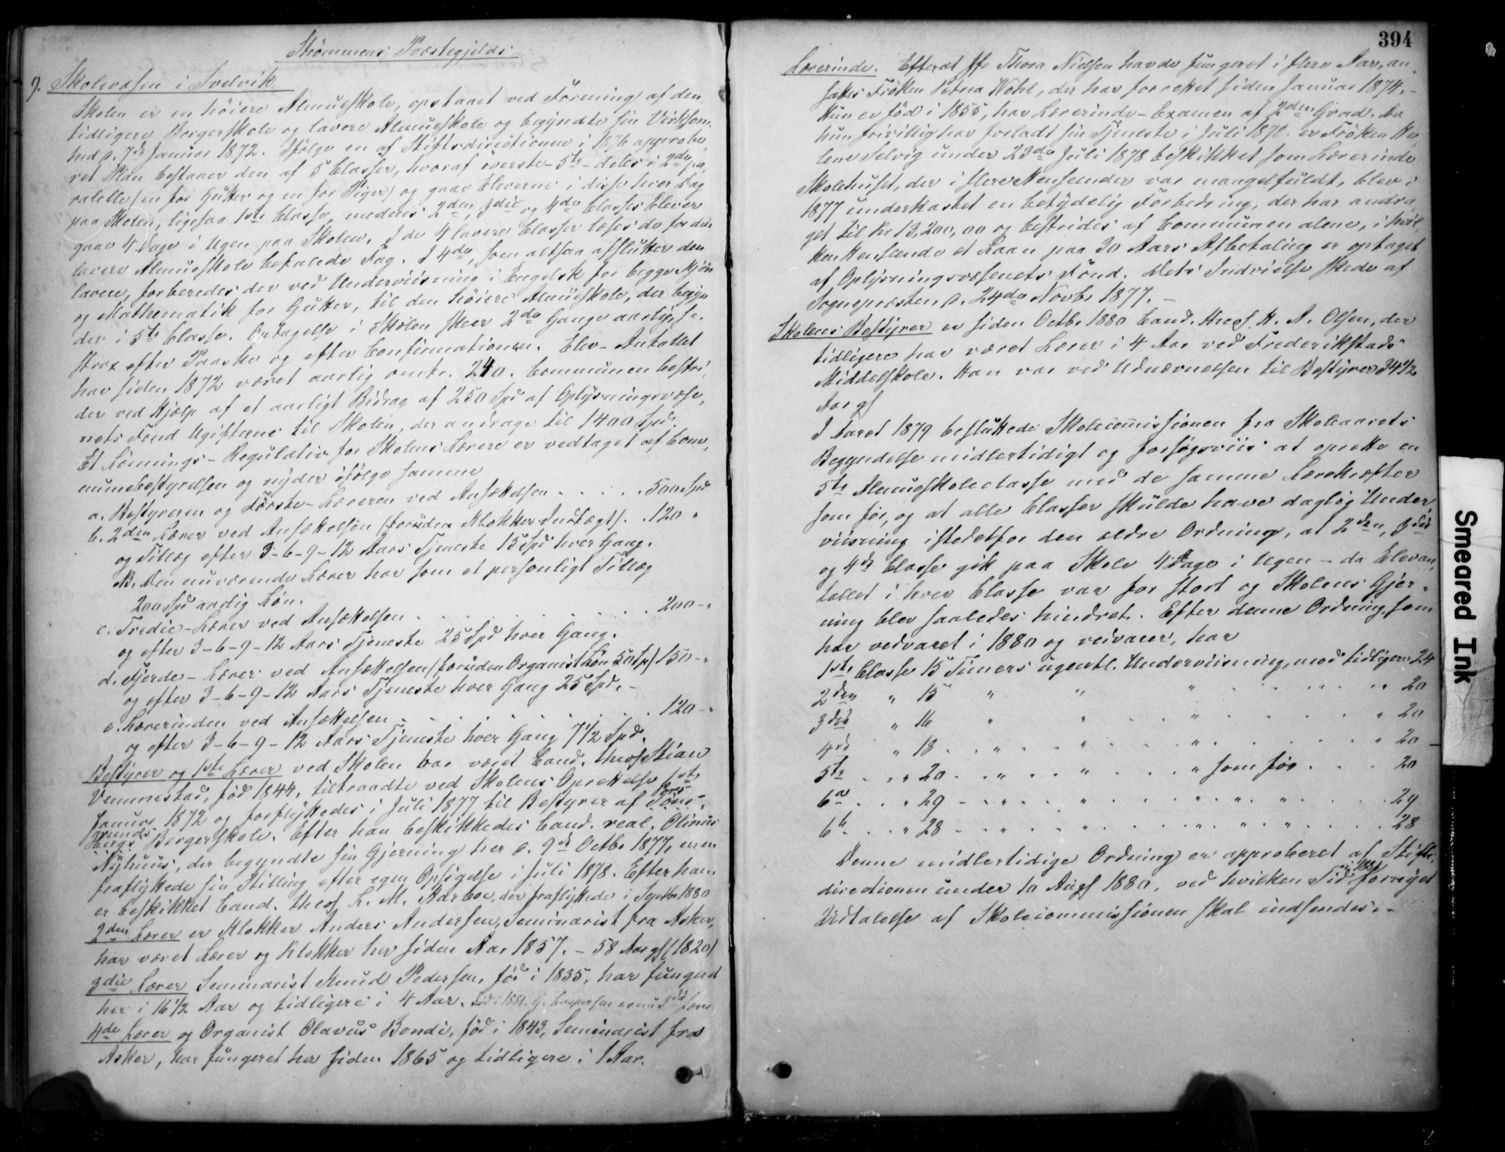 Strømmens Præstegjeld
9. Skolevæsen i Svelvik
Skolen er en høiere Almueskole, opstaaet ved Forening af den
tidligere Borgerskole og lavere Almueskole og begyndte sin Virksom,
hed d. 7de Januar 1872. Ifølge en af Stiftsdirectionen i 1876 approbe,
ret Plan bestaaer den af 5 Classer, hvoraf øverste - 5te - deles i 2de pa,
ralelle (en for Gutter og en for Piger) og gaae Eleverne i disse hver Dag
paa Skolen, ligesaa 1ste Classe, medens 2den, 3die og 4de Classes Elever
gaae 4 Dage i Ugen paa Skolen. I de 4 lavere Classer læses de for den
lavere Almueskole befalede Fag. I 4de, som altsaa afslutter den
lavere, forberedes der ved Underviisning i Engelsk for begge Kjøn
og Mathematik for Gutter, til den høiere Almueskole, der begyn
der i 5te Classe. Optagelse i Skolen skeer 2de Gange aarlig,
strax efter Paaske og efter Confirmationen. Elev-Antallet
har siden 1872 været aarlig omtr. 240. Communen bestri,
der ved Hjælp af et aarligt Bidrag af 250 Spd af Oplysningsvæse,
nets Fond Udgifterne til Skolen, der andrage til 1400 Spd.
Et Lønnings-Regulativ for Skolens Lærere er vedtaget af Com,
munebestyrelsen og nyder ifølge samme
a. Bestyreren og Første-Læreren ved Ansættelsen . . . . . 500 Spd
b. 2den Lærer ved Ansættelsen (foruden Klokker Indtægt) . 120 "
og Tillæg efter 3-6-9-12 Aars Tjeneste 15 Spd hver Gang.
NB. Den nuværende Lærer har som et personligt Tillæg
200 Spd aarlig Løn.
c. Tredie-Lærer ved Ansættelsen . . . . . . . . 200 - "
og efter 3-6-9-12 Aars Tjeneste 25 Spd hver Gang.
d. Fjerde-Lærer ved Ansættelsen (foruden Organist Løn 50 Spd) 150 - "
og efter 3-6-9-12 Aars Tjeneste hver Gang 25 Spd. -
e. Lærerinden ved Ansættelsen . . . . . . . . . 120 - "
og efter 3-6-9-12 Aars Tjeneste hver Gang 7 1/2 Spd.
Bestyrer og 1ste Lærer ved Skolen har været Cand. theol Stian
Vemmestad, født 1844, tiltraadte ved Skolens Oprettelse 1ste
Januar 1872 og forflyttedes i Juli 1877 til Bestyrer af
Borgerskole. Efter ham beskikkedes Cand. real. Olinius
Nyhuus, der begyndte sin Gjerning her d. 9de Octbr 1877, men
fraflyttede sin Stilling efter egen Opsigelse i Juli 1878. Efter ham
er beskikket Cand. theol L. M. Aarboe, der fraflyttede i Septbr 1880
2den Lærer er Klokker Anders Andersen, Seminarist fra Asker,
har været Lærer og Klokker her siden Aar 1857. - 58 Aar gl (1820)
3die Lærer Seminarist Knud Pedersen, fød i 1835, har fungeret
her i 16 1/2 Aar og tidligere i 4 Aar.
4de Lærer og Organist Olavus Bondi, fød i 1843, Seminarist fra
Asker, har fungeret her siden 1865 og tidligere i 1 Aar.
394
Lærerinde. Efterat Thora Nielsen havde fungeret i flere Aar, an
sattes Frøken Petrea Wohl, der har forrettet siden Januar 1874. -
Hun er fød i 1855, har Lærerinde-Examen af 2den Grad. Da
hun frivillig har forladt sin Tjeneste i Juli 1878 er Frøken He
lene Selvig under 23de Juli 1878 beskikket som Lærerinde
Skolehuset, der i flere Henseender var mangelfuldt, blev i
1877 underkastet en betydelig Forbedring, der har andra
get til kr 13,200,00 og bestrides af Communen alene, i hvil,
ken Henseende et Laan paa 20 Aars Afbetaling er optaget
af Oplysningsvæsenets Fond. Dets Indvielse skede af
Sognepræsten d. 24de Novbr 1877. -
Skolens Bestyrer er siden Octbr 1880 Cand. theol H. A. Olsen, der
tidligere har været Lærer i 4 Aar ved Frederikstads
Middelskole. Han var ved Udnævnelsen til Bestyrer 34 1/2
Aar gl
I Aaret 1879 besluttede Skolecommissionen fra Skoleaarets
Begyndelse midlertidigt og forsøgsviis at oprette en
5te Almueskoleclasse med de samme Lærekræfter
som før, og at alle Classer skulde have daglig Under,
viisning istedetfor den ældre Ordning, at 2den, 3die
og 4de Classe gik paa Skole 4 Dage i Ugen - da Elevan,
tallet i hver Classe var for stort og Skolens Gjer-
ning blev saaledes hindret. Efter denne Ordning, som
har vedvaret i 1880 og vedvarer, har
1ste Classe 15 Timers ugentl. Underviisning, mod tidligere 24
2den " 15 " " " 20
3die " 16 " " " 20
4de " 18 " " " 20
5te " 20 " " " som før 20
6a " 29 " " " 29
6b " 28 " " " 28
Denne midlertidige Ordning er approberet af Stifts,
directionen under 10 Augst 1880, ved hvilken Tid fornyet
Udtalelse af Skolecommissionen skal indsendes. -
Smeared Ink